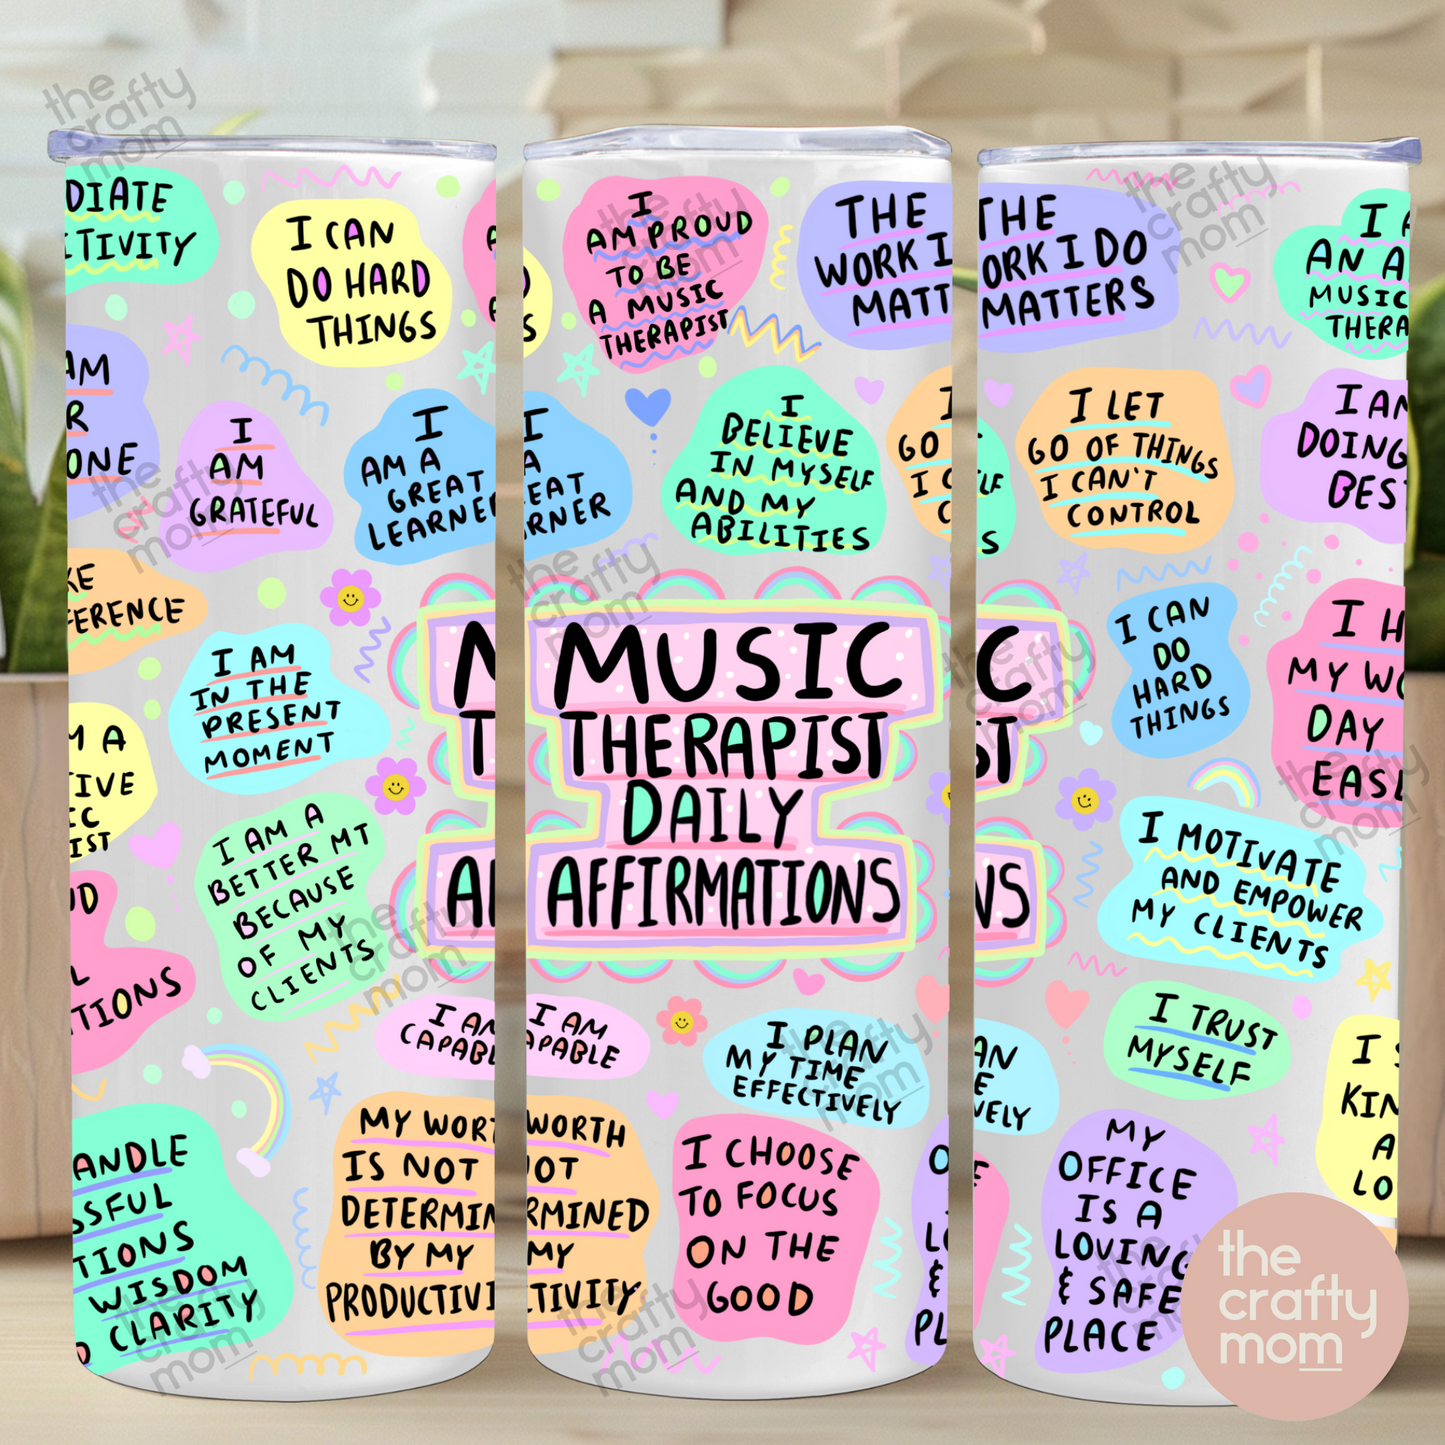 DIATE
TIVITY
I CAN
DO HARD
THINGS
AM
R
ONE
I
AM
GRATEFUL
I
AM A
GREAT
LEARNE
KE
FERENCE
I AM
IN THE
PRESENT
MOMENT
M A
IVE
IC
IST
I AM A
BETTER MT
BECAUSE
OF MY
CLIENTS
UD
L
TIONS
I AM
CAPABL
ANDLE
SSFUL
TIONS
WISDOM
D CLARITY
MY WORT
IS NOT
DETERMIN
BY MY
PRODUCTIVI
I
AM PROUD
TO BE
A MUSIC
THERAPIST
THE
WORK I
MATT
I
A
EAT
RNER
I
BELIEVE
IN MYSELF
AND MY
ABILITIES
I
GO
I C
C
MUSIC
THERAPIST
DAILY
AFFIRMATIONS
I AM
APABLE
I PLAN
MY TIME
EFFECTIVELY
WORTH
OT
RMINED
MY
TIVITY
I CHOOSE
TO FOCUS
ON THE
GOOD
O
L
&
PL
THE
ORK I DO
MATTERS
I A
AN A
MUSIC
THERA
I LET
GO OF THINGS
I CAN'T
CONTROL
I AM
DOING
BES
IC
ST
NS
I CAN
DO
HARD
THINGS
I H
MY WO
DAY
EASL
I MOTIVATE
AND EMPOWER
MY CLIENTS
AN
E
VELY
I TRUST
MYSELF
I S
KIN
A
LO
MY
OFFICE
IS A
LOVING
& SAFE
PLACE
the
crafty
mom